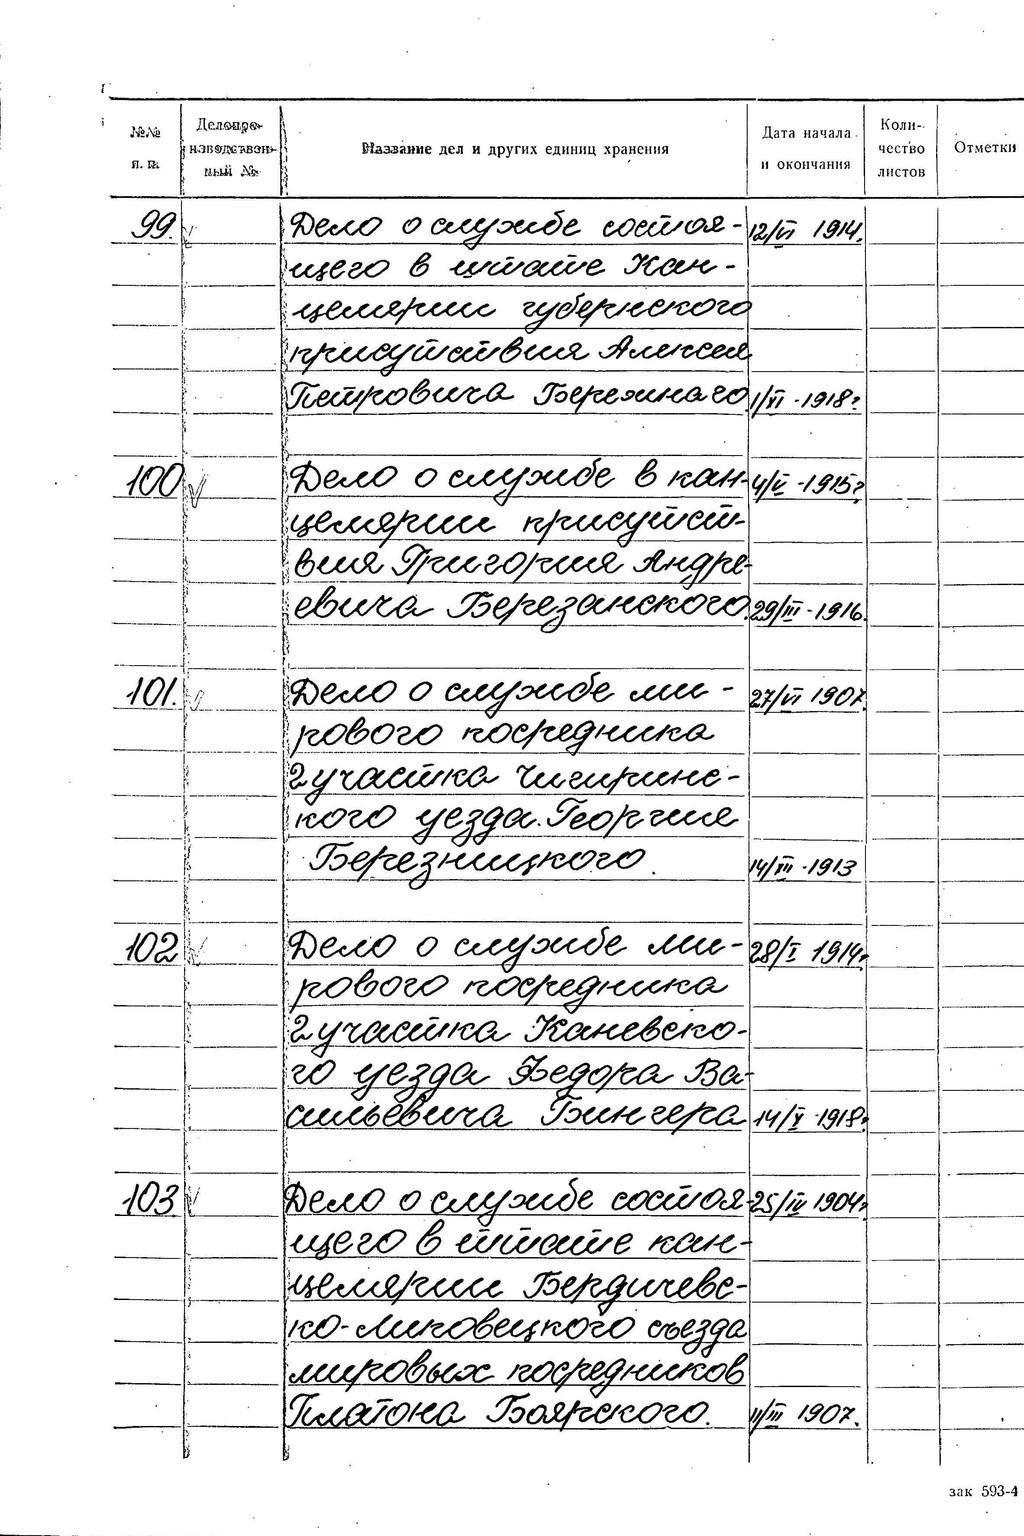 №№ п. п.
Делопроизводственный №
Название дел и других единиц хранения
Дата начала и окончания
Количество листов
Отметки
99. Дело о службе состоя- 12/VI 1914.
щего в штате Кан-
целярии губернского
присутствия Алексея
Петровича Бережнаго 1/XI - 1918г
100 Дело о службе в кан- 4/V - 1915г
целярии присутст-
вия Григория Андре-
евича Березанского. 29/III - 1916.
101. Дело о службе ми- 27/VI 1907.
рового посредника
2 участка Чигиринс-
кого уезда Георгия
Березницкого. 14/XII - 1913
102 Дело о службе ми- 28/I 1914г
рового посредника
2 участка Каневско-
го уезда Федора Ва-
сильевича Бингера 14/V - 1918г
103. Дело о службе состоя- 25/IV 1904г
щего в штате кан-
целярии Бердичевс-
ко-Липовецкого съезда
мировых посредников
Платона Боярского. 11/III 1907.
зак 593-4